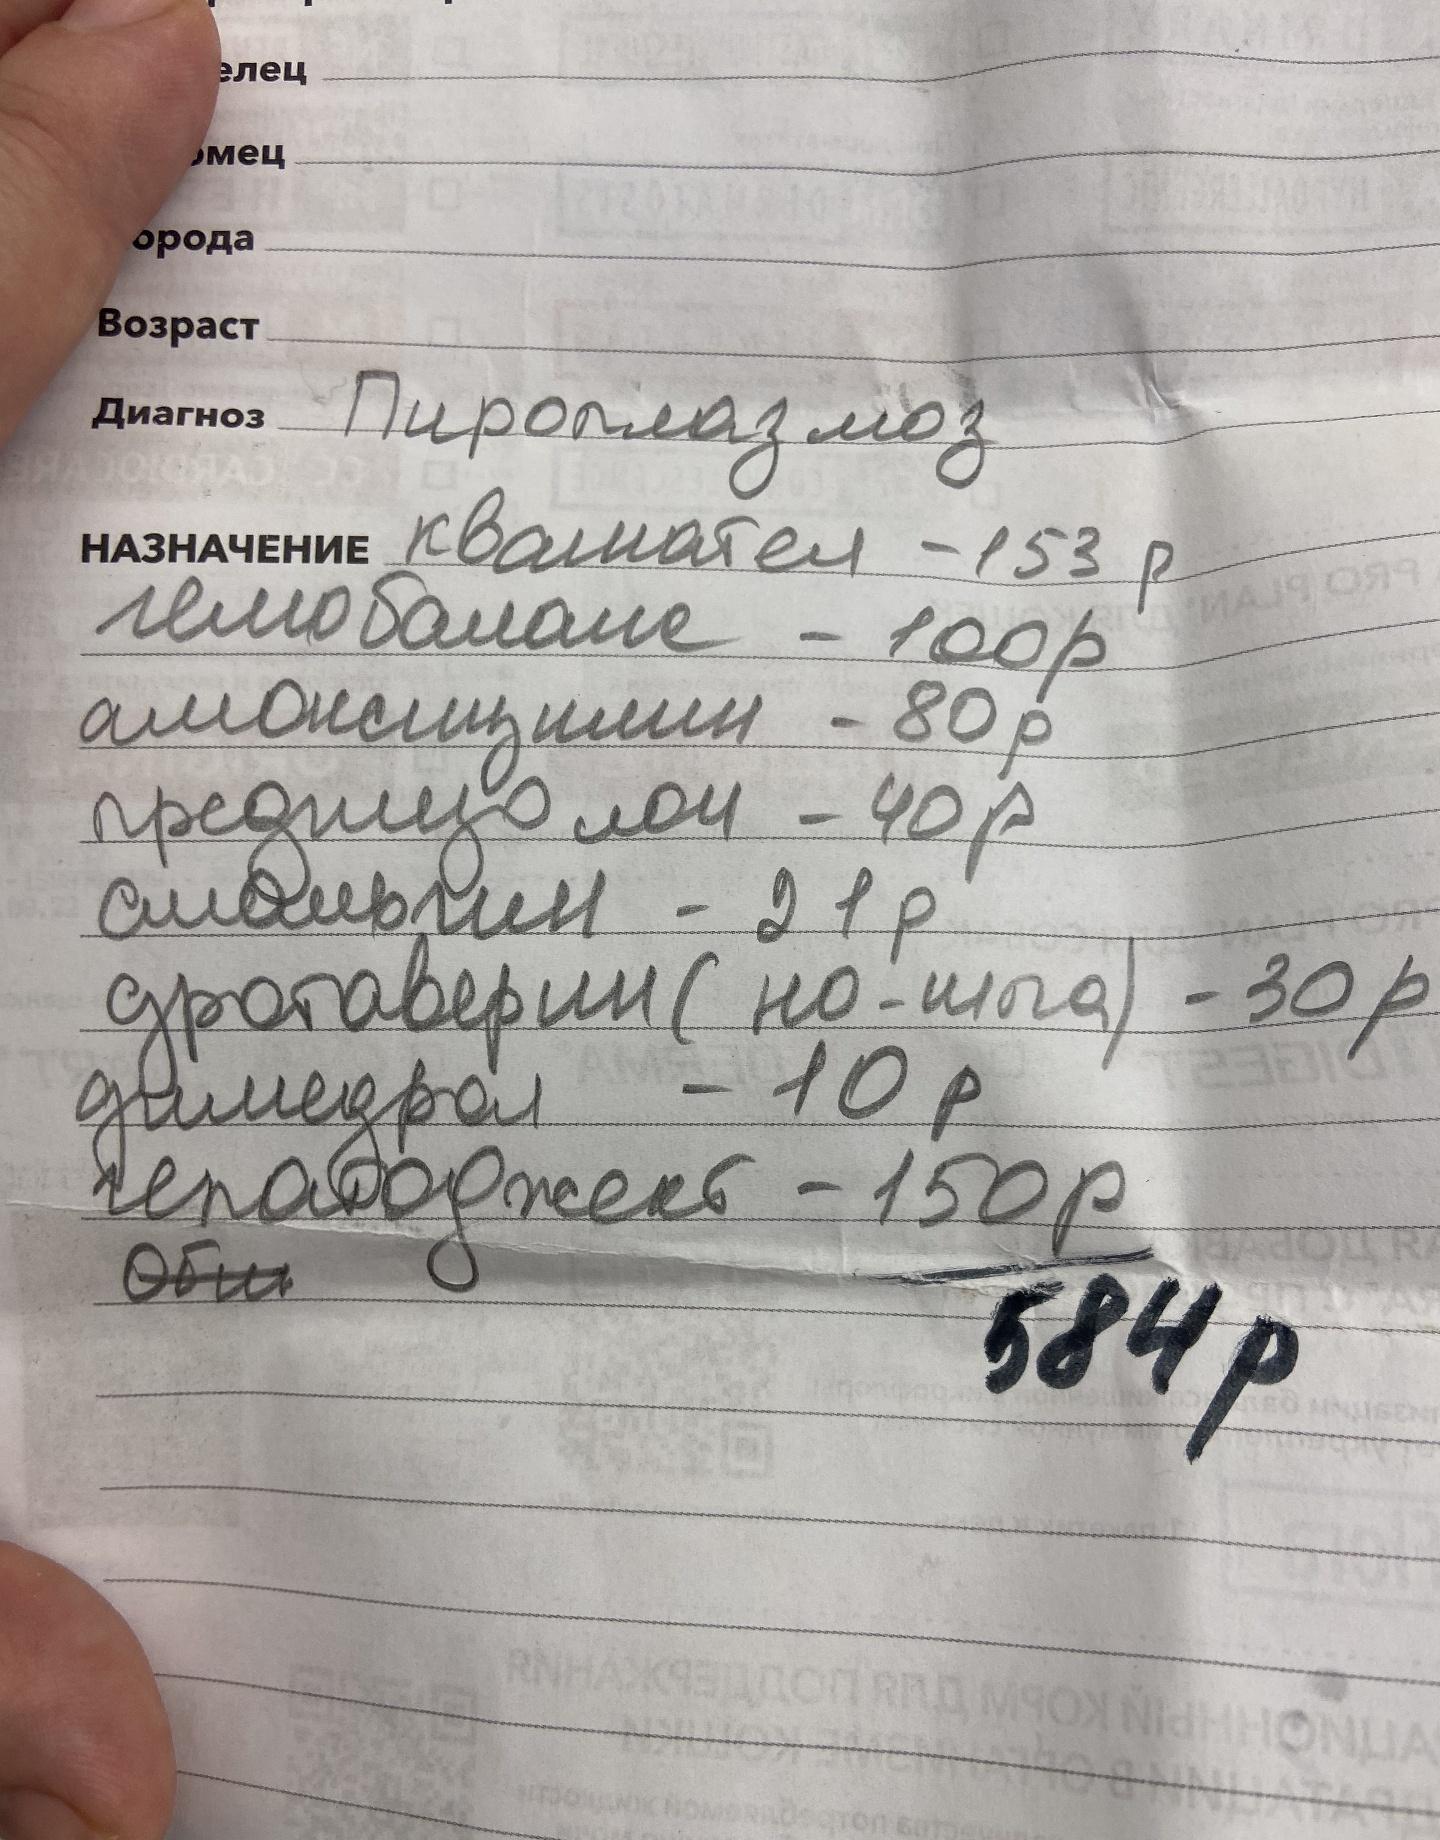 елец
омец
орода
Возраст
Диагноз Пироплазмоз
НАЗНАЧЕНИЕ квамател - 153 р
гемобаланс - 100р
амоксициллин - 80р
преднизолон - 40р
анальгин - 21р
дротаверин (но-шпа) - 30р
димедрол - 10р
гепатоджект - 150р
584р